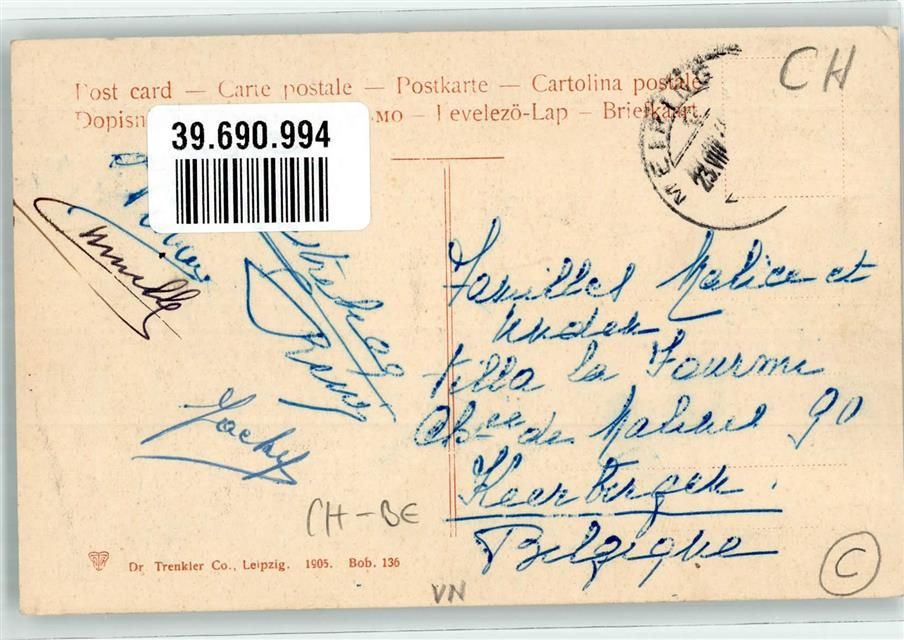 Post card — Carte postale — Postkarte — Cartolina postale
Dopisn мо — Levelezö-Lap — Briefkaart
CH
39.690.994
MEIRING
23.VIII
Familles Malice et
Villa la Fourmi
Chée de Malines 90
Keerbergen.
Belgique
Jacky
CH-BE
Dr Trenkler Co., Leipzig. 1905. Bob. 136
VN
C